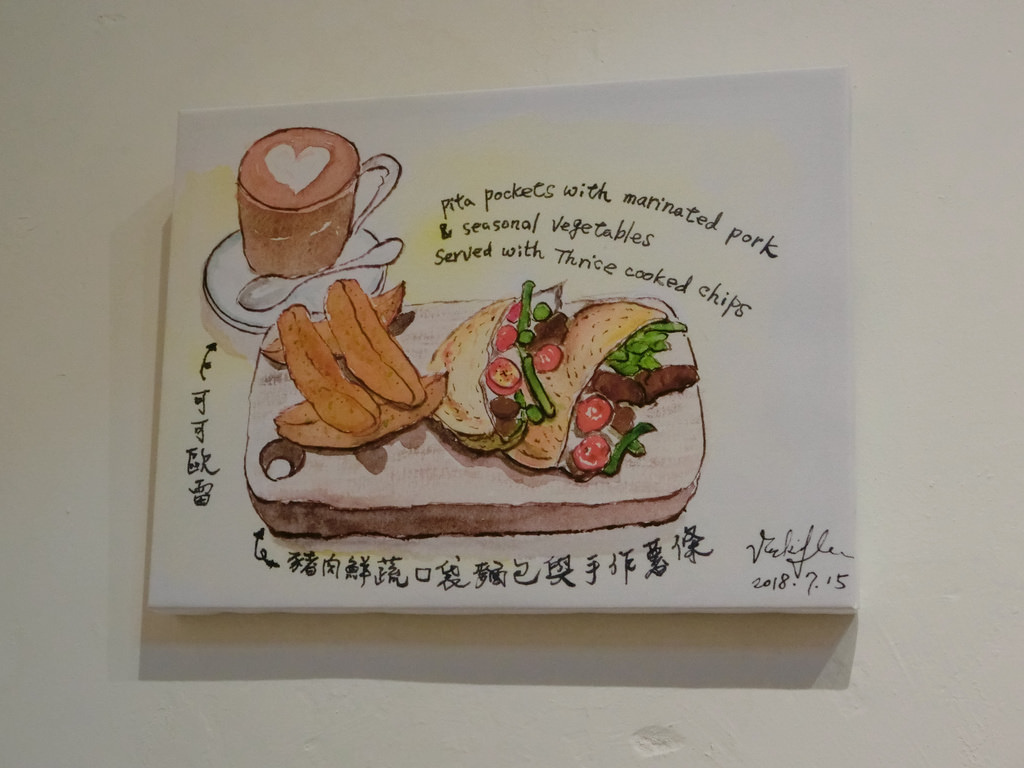 pita pockets with marinated pork
& seasonal vegetables
served with Thrice cooked chips
可可歐雷
豬肉鮮蔬口袋麵包與手作薯條
2018.7.15